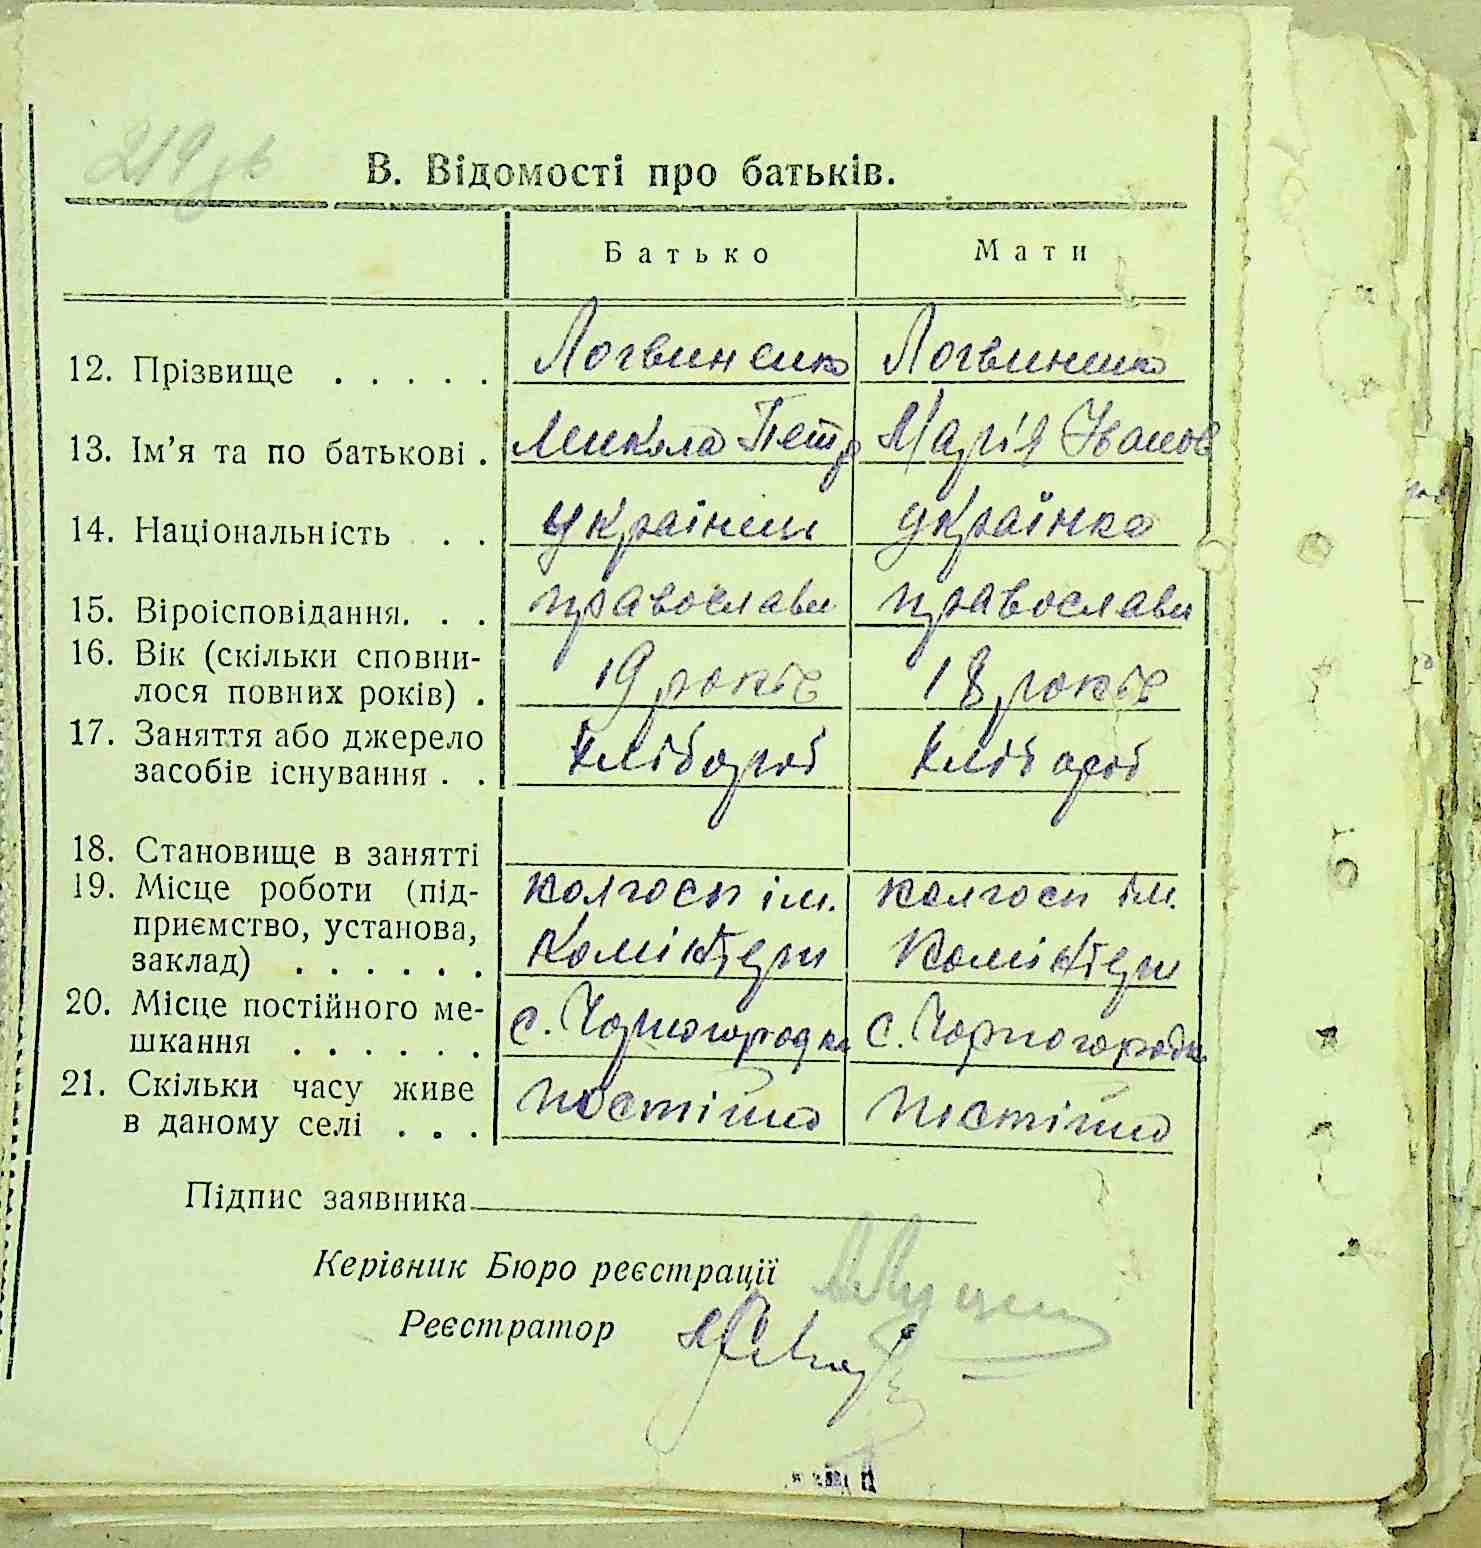 219 зв
В. Відомості про батьків.
Батько Мати
12. Прізвище . . . . . Логвиненко Логвиненко
13. Ім’я та по батькові . Микола Петр Марія Іванов
14. Національність . . українец українка
15. Віроісповідання. . . православн православн
16. Вік (скільки сповни-
лося повних років) . 19 років 18 років
17. Заняття або джерело
засобів існування . . хлібороб хлібороб
18. Становище в занятті
19. Місце роботи (під- колгосп ім. колгосп ім.
приємство, установа,
заклад) . . . . . . Комінтерн Комінтерн
20. Місце постійного ме-
шкання . . . . . . с. Чорногородка с. Чорногородк
21. Скільки часу живе
в даному селі . . . постійно постійно
Підпис заявника
Керівник Бюро реєстрації
Реєстратор